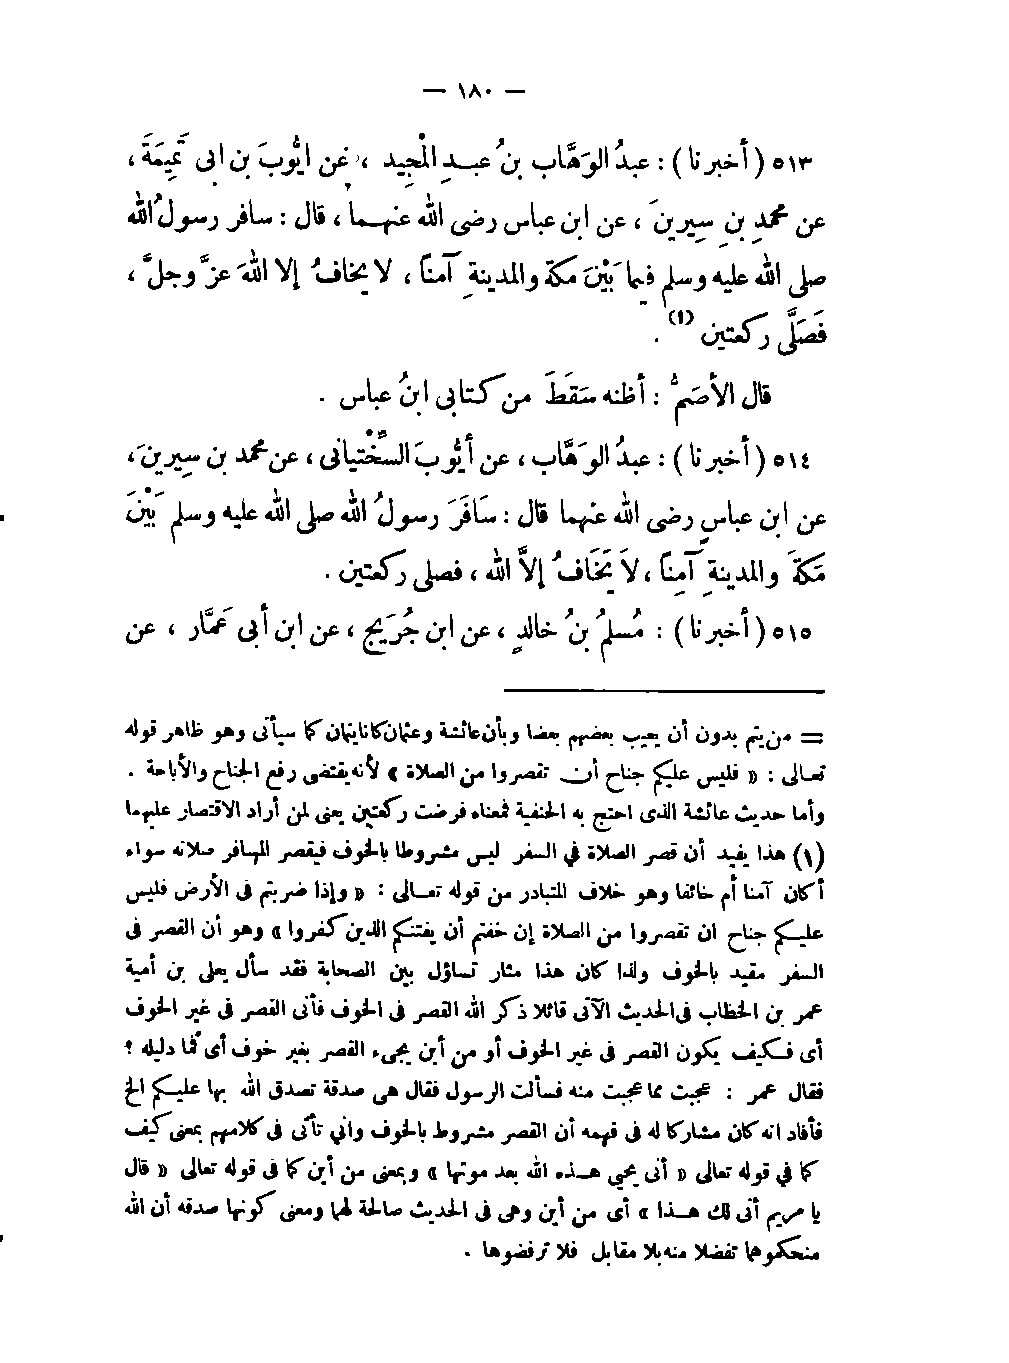 — ١٨٠ —
٥١٣ ( أخبرنا ) : عبدُ الوَهَّاب بنُ عبدِ المْجِيد ، عن ايُّوبَ بن ابى تَمِيمَةَ ،
عن محمدِ بنِ سِيرِينَ ، عن ابن عباس رضى الله عنهما ، قال : سافر رسولُ الله
صلى الله عليه وسلم فيما بَيْنَ مكة والمدينةِ آمناً ، لا يخافُ إلا اللهَ عزَّ وجلَّ ،
فَصَلَّى ركعتين (١) .
قال الأصَمُّ : أظنه سَقَطَ من كتابى ابنُ عباس .
٥١٤ ( أخبرنا ) : عبدُ الوَهَّاب ، عن أيُّوبَ السِّخْتيانى ، عن محمد بن سِيرينَ ،
عن ابن عباسٍ رضى الله عنهما قال : سَافَرَ رسولُ الله صلى الله عليه وسلم بَيْنَ
مَكةَ والمدينةِ آمِناً ، لاَ يَخَافُ إلاَّ الله ، فصلى ركعتين .
٥١٥ ( أخبرنا ) : مُسلمُ بنُ خالدٍ ، عن ابن جُرَيج ، عن ابن أبى عَمَّار ، عن
= من يتم بدون أن يعيب بعضهم بعضا وبأن عائشة وعثمان كانا يتمان كما سيأتى وهو ظاهر قوله
تعالى : « فليس عليكم جناح أن تقصروا من الصلاة » لأنه يقتضى رفع الجناح والأباحة .
وأما حديث عائشة الذى احتج به الحنفية فمعناه فرضت ركعتين يعنى لمن أراد الاقتصار عليهما
(١) هذا يفيد أن قصر الصلاة في السفر ليس مشروطا بالخوف فيقصر المسافر صلاته سواء
أكان آمنا أم خائفا وهو خلاف المتبادر من قوله تعالى : « وإذا ضربتم فى الأرض فليس
عليكم جناح ان تقصروا من الصلاة إن خفتم أن يفتنكم الذين كفروا » وهو أن القصر فى
السفر مقيد بالخوف ولذا كان هذا مثار تساؤل بين الصحابة فقد سأل يعلى بن أمية
عمر بن الخطاب فى الحديث الآتى قائلا ذكر الله القصر فى الخوف فأنى القصر فى غير الخوف
أى فكيف يكون القصر فى غير الخوف أو من أين يجىء القصر بغير خوف أى فما دليله ؟
فقال عمر : عجبت مما عجبت منه فسألت الرسول فقال هى صدقة تصدق الله بها عليكم الخ
فأفاد انه كان مشاركا له فى فهمه أن القصر مشروط بالخوف وانى تأتى فى كلامهم بمعنى كيف
كما في قوله تعالى « أنى يحيي هذه الله بعد موتها » وبمعنى من أين كما فى قوله تعالى « قال
يا مريم أنى لك هذا » أى من أين وهى فى الحديث صالحة لهما ومعنى كونها صدقه أن الله
منحكموها تفضلا منه بلا مقابل فلا ترفضوها .